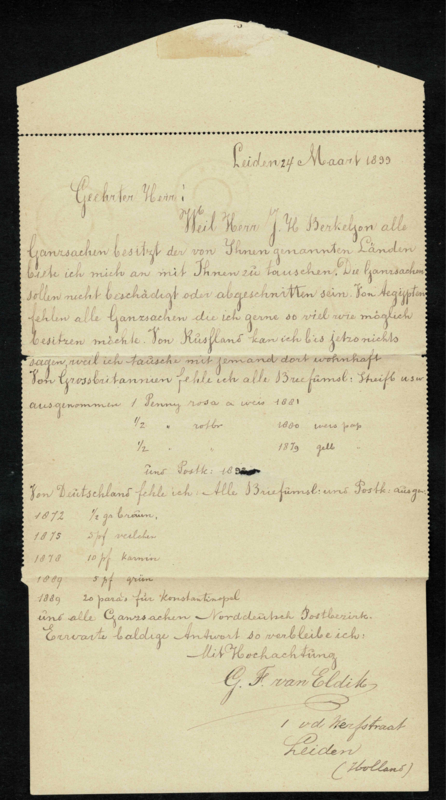 Leiden 24 Maart 1899
Geehrter Herr!
Weil Herr J. H Berkeljon alle
Ganzsachen besitzt der von Ihnen genannten Länden
biete ich mich an mit Ihnen zu tauschen. Die Ganzsachen
sollen nicht beschädigt oder abgeschnitten sein. Von Aegijpten
fehlen alle Ganzsachen die ich gerne so viel wie möglich
besitzen möchte. Von Rüsfland kan ich bis jetzo nichts
sagen, weil ich tausche mit jemand dort wohnhaft
Von Grossbritannien fehle ich alle Briefümsl: Streifb usw
ausgenommen 1 Penny rosa a weis 1881
1/2 " rotbr 1880 weis pap
1/2 " " 1879 gelb "
und Postk:
Von Deutschland fehle ich: Alle Briefümsl: und Postk: ausgen
1872 1/2 gr braün,
1875 5 pf veilchen
1878 10 pf karmin
1889 5 pf grün
1889 20 para's für Konstantinopel
und alle Ganzsachen Norddeutsch Postbezirk.
Erwarte baldige Antwort so verbleibe ich:
Mit Hochachtüng
G. F. van Eldik
1 vd Werfstraat
Leiden
(Holland)